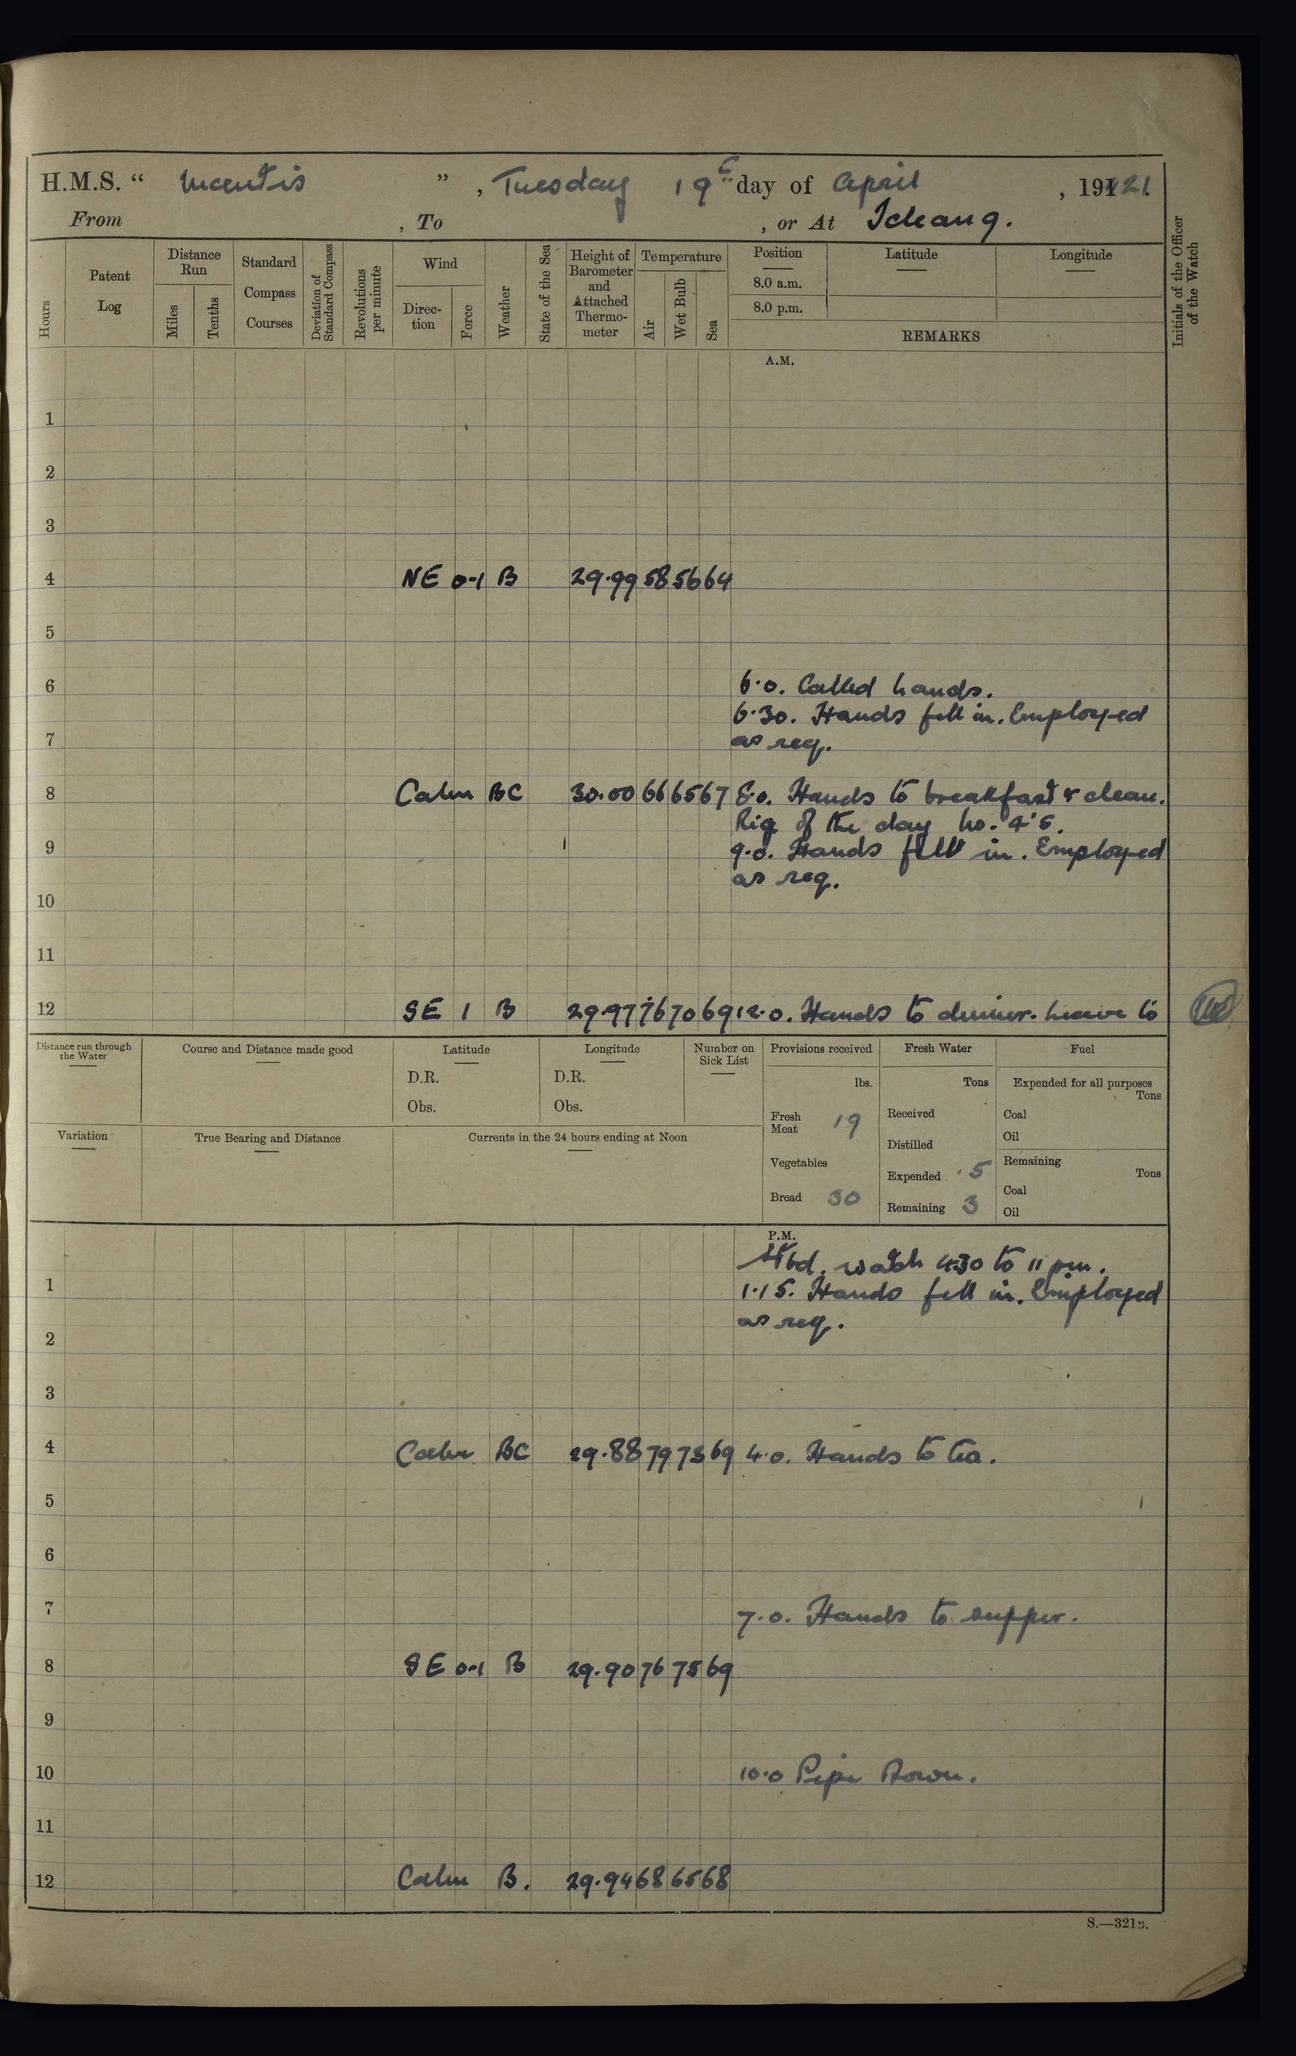 H.M.S. " Mantis ", Tuesday 19th day of April, 1921.
From , To , or At Ichang.
Hours
Patent Log
Distance Run
Miles
Tenths
Standard Compass Courses
Deviation of Standard Compass
Revolutions per minute
Wind
Direction
Force
Weather
State of the Sea
Height of Barometer and Attached Thermometer
Temperature
Air
Wet Bulb
Sea
Position
8.0 a.m.
8.0 p.m.
Latitude
Longitude
REMARKS
Initials of the Officer of the Watch
A.M.
1
2
3
4 NE 0-1 B 29.99 58 56 64
5
6 6.0. Called hands.
6.30. Hands fell in. Employed
7 as req.
8 Calm BC 30.00 66 65 67 8.0. Hands to breakfast & clean.
Rig of the day No. 4's.
9 9.0. Hands fell in. Employed
as req.
10
11
12 SE 1 B 29.97 76 70 69 12.0. Hands to dinner. Leave to
Distance run through the Water
Course and Distance made good
Latitude
D.R.
Obs.
Longitude
D.R.
Obs.
Number on Sick List
Provisions received
lbs.
Fresh Meat 19
Vegetables
Bread 30
Fresh Water
Tons
Received
Distilled
Expended .5
Remaining 3
Fuel
Expended for all purposes
Tons
Coal
Oil
Remaining
Tons
Coal
Oil
Variation
True Bearing and Distance
Currents in the 24 hours ending at Noon
P.M.
Stbd. watch 4.30 to 11 pm.
1 1.15. Hands fell in. Employed
as req.
2
3
4 Calm BC 29.88 79 73 69 4.0. Hands to tea.
5
6
7 7.0. Hands to supper.
8 SE 0-1 B 29.90 76 75 69
9
10 10.0 Pipe Down.
11
12 Calm B. 29.94 68 65 68
S.—321B.